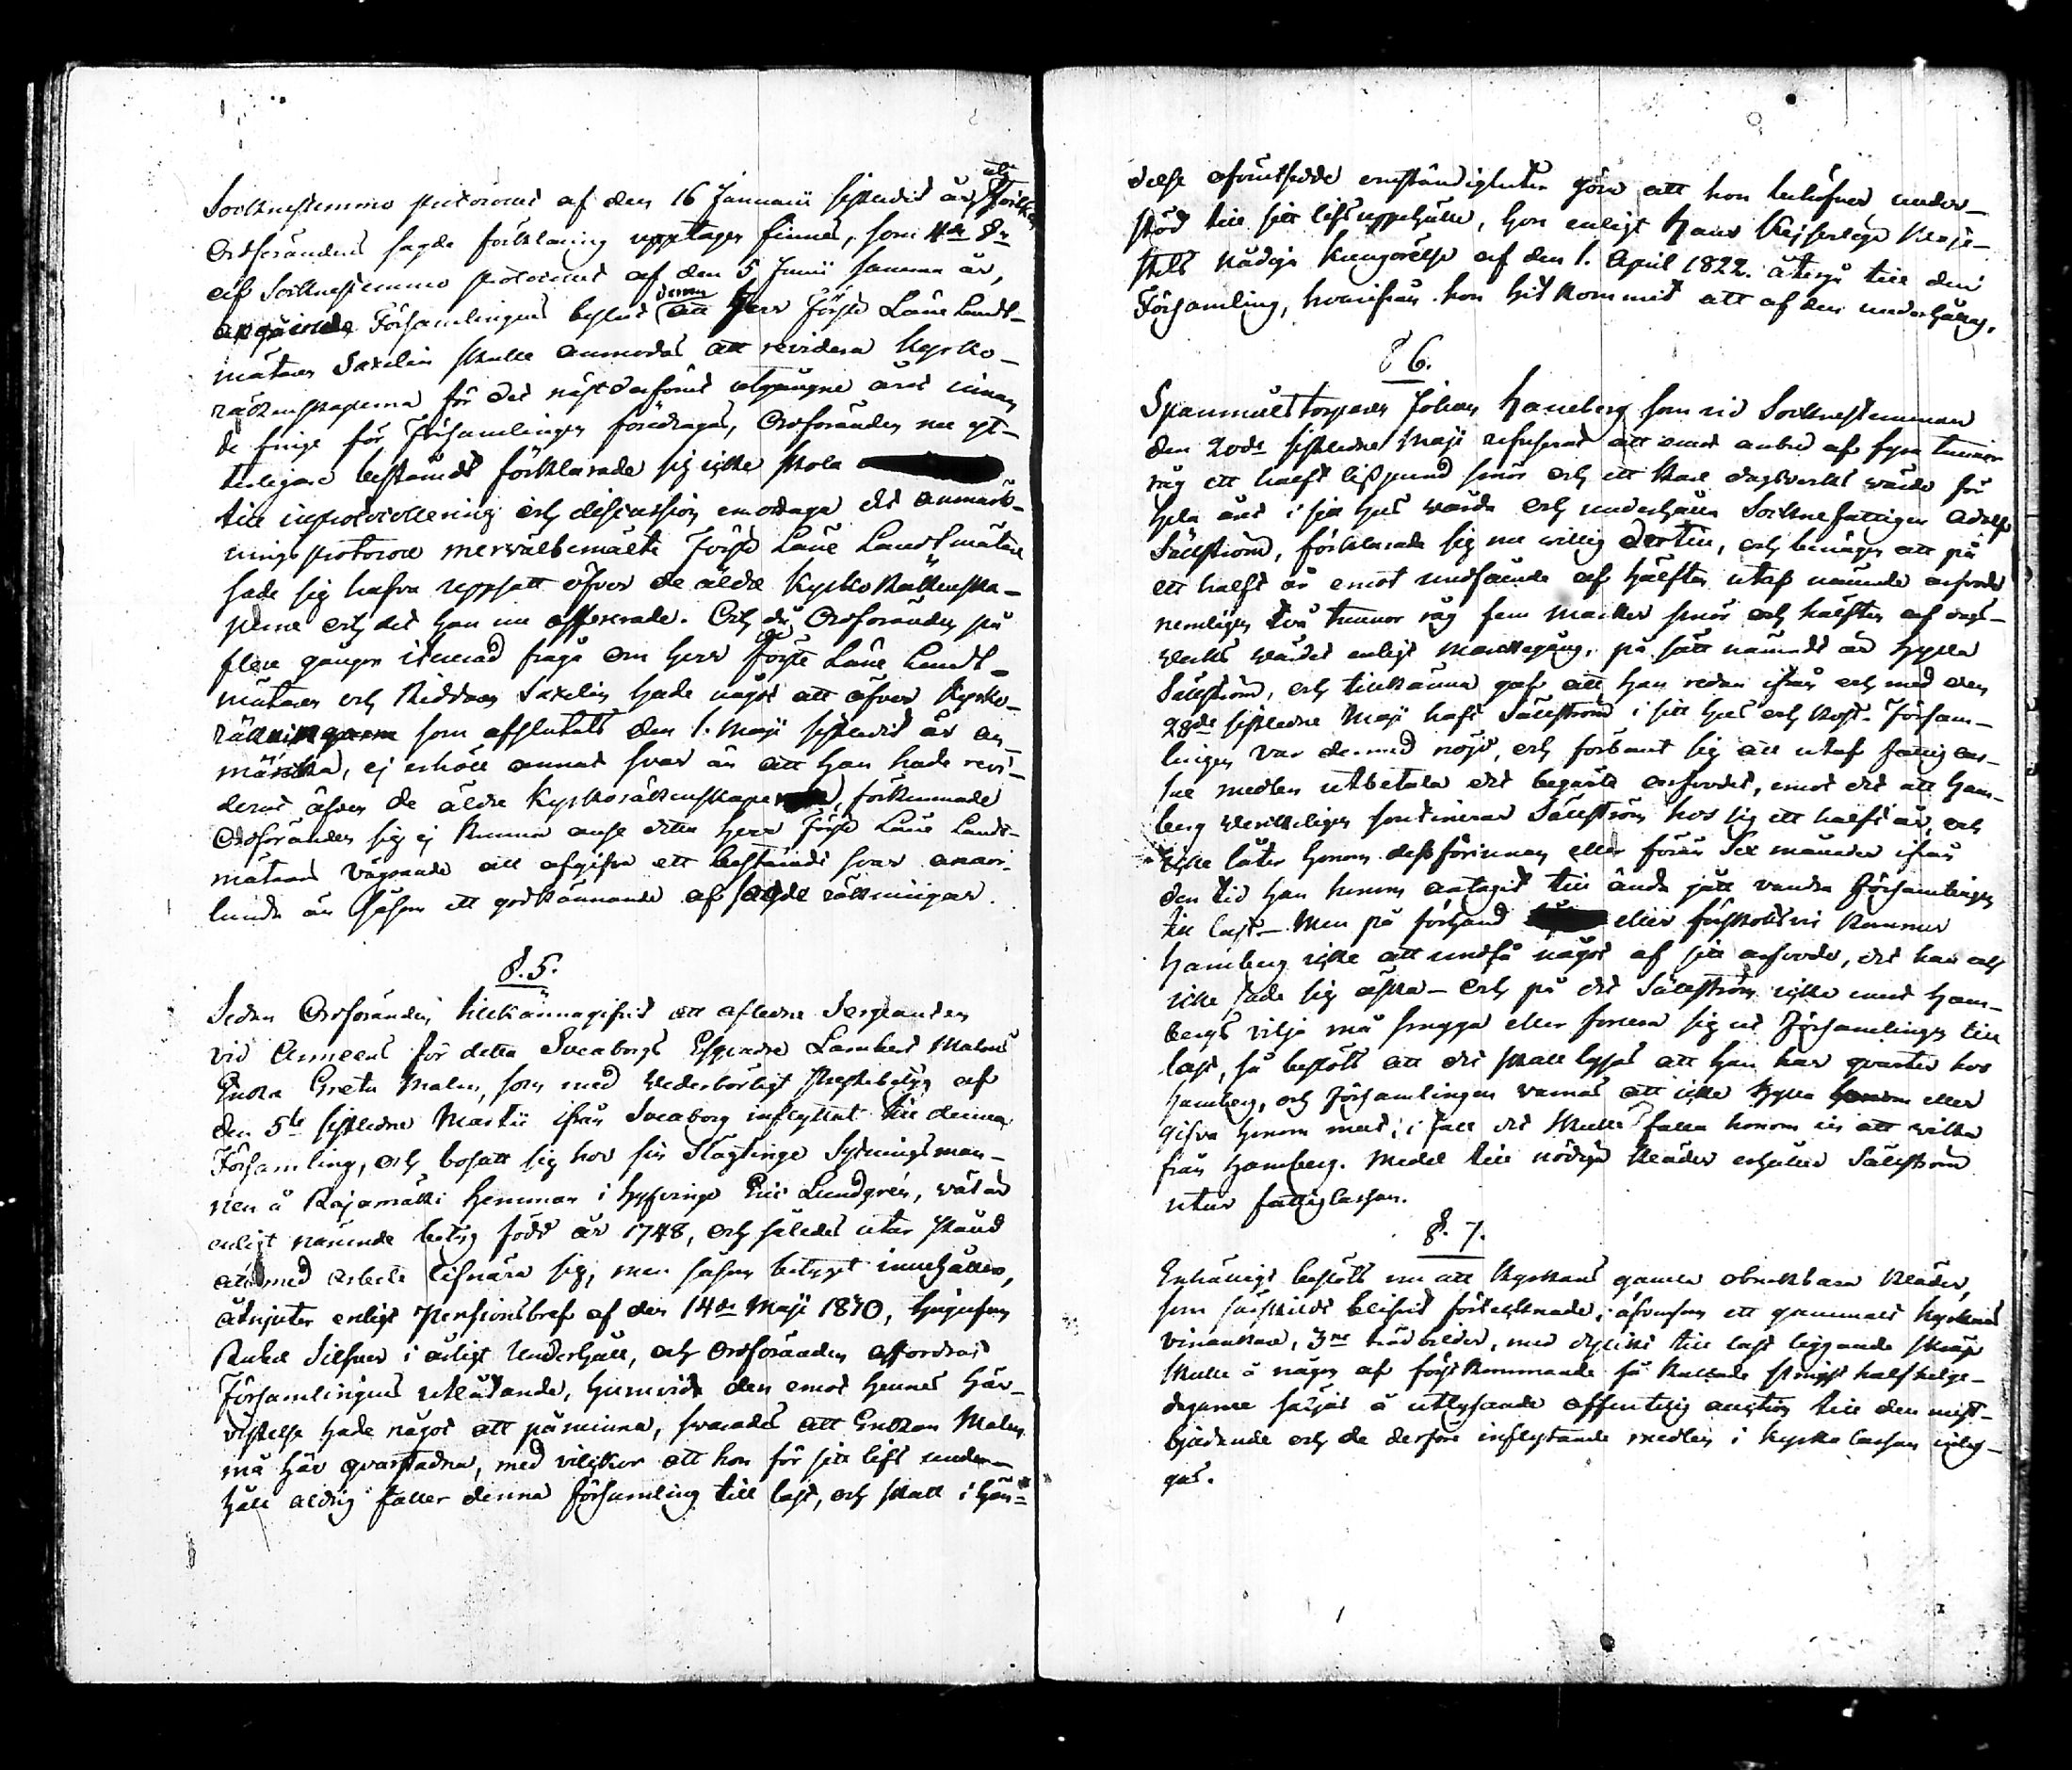 Socknestemmo protocollet af den 16 Januarii sistledit år, utj hvilken
Ordförandens sagde förklaring upptagen finnes, som 4de §n
af Socknestemmo protocollet af den 5 Junii samma år,
angående Församlingens beslut derom att Herr Förste Lane Landt-
mätaren Saxelin skulle anmodas att revidera kyrko-
räckenskaperna för det näst derföre utgångne året innan
de finge för Församlingen föredragas, Ordföranden nu yt-
terligare bestämdt förklarade sig icke skola
till inprotocollering och discussion emottaga det anmärk-
nings protocoll merwälbemälte Förste Lane Landtmätare
sade sig hafva uppsatt öfver de äldre kyrko Räkenska-
perne och det han nu offererade. Och då Ordföranden på
flere gånger iterrerad fråga om Herr Förste Lane Landt-
mätaren och Riddaren Saxelin hade något att öfver kyrko-
räkningarne som afslutats den 1. Maji sistledit år an-
märcka, ej erhöll annat svar än att han hade revi-
derat äfven de äldre kyrkoräkenskaperna, förkunnade
Ordföranden sig ej kunna anse detta Herr Förste Lane Landt-
mätarens vägrande att afgifva ett bestämdt svar annor-
lunda än såsom ett godkännande af sagde räkningar.
§. 5.
Sedan Ordföranden tillkännagifvit att aflidne Sergeanten
vid Armeens för detta Sveaborgs Esqvadre Lambert Malms
Enka Greta Malm, som med wederbörligt Prestebetyg af
den 5te sistledne Martii ifrån Sveaborg inflyttat till denna
Församling, och bosatt sig hos sin Slägtinge Sytningsman-
nen å Rajamäki Hemman i Hyfvinge Eric Lundgren, wäl är
enligt nämnde betyg född år 1748, och således utur stånd
att med arbete lifnära sig, men såsom betyget innehåller,
åtnjuter enligt Pensionsbref af den 14de Maji 1810, tjugufem
Rubel Silfver i årligt underhåll, och Ordföranden affordrat
Församlingens utlåtande, huruvida den emot hennes här-
vistelse hade något att påminna, svarades att Enkan Malm
må här qvarstadna, med vilckor att hon för sitt lifs under-
håll aldrig faller denna Församling till last, och skall i hän-
delse oförutsedde omständigheter göra att hon behöfver under-
stöd till sitt lifs uppehälle, hon enligt Hans Kejserliga Maje-
stets Nådiga Kungörelse af den 1. April 1822. återgå till den
Församling, hvarifrån hon hit kommit att af den underhållas.
§ 6.
Spanmålstorparen Johan Hamberg som vid Socknestemman
den 20de sistledne Maji refuserat att emot anbud af fyra tunnor
råg ett halft lispund smör och ett karl dagsverkes wärde för
hela året i sitt hus wårda och underhålla Socknefattigen Adolf
Sällström, förklarade sig nu willig dertill, och benägen att på
ett halft år emot undfående af hälften utaf nämnde arfvode
nemligen två tunnor råg fem marker smör och hälften af dags-
werks wärdet enligt Markegång, på sätt nämndt är hysa
Sällström, och tillkänna gaf att han redan ifrån och med den
28de sistledne Maji haft Sällström i sitt hus och kost. Försam-
lingen var dermed nöjd, och förbant sig att utaf fattig cas-
sae medlen utbetala det begärte arfvodet, emot det att Ham-
berg werkeligen continerar Sällström hos sig ett halft år, och
icke låter honom dessförinnan eller förrän Sex månader ifrån
den tid han honom antagit till ända gått vandra Församlingen
till last.- Men på förhand eller förskotts vis kommer
Hamberg icke att undfå något af sitt arfvode, det han och
icke sade sig äska - Och på det Sällström icke emot Ham-
bergs vilja må smyga eller förena sig ut Församlingen till
last, så beslöts att det skall lysas att han har qvarter hos
Hamberg, och Församlingen varnas att icke hysa honom eller
gifva honom mat, i fall det skulle falla honom in att wika
från Hamberg. Medel till nödiga kläder erhåller Sällström
utur fattig cassan.
§. 7.
Enhälligt beslöts nu att kyrkans gamla obrukbara kläder,
som särskildt blifvit förtecknade, äfvensom ett gammalt kyrkans
vinankar, 3ne träd bilder, med dylikt till last liggande skräp
skulle å någon af först kommande så kallade stinsst half helge-
dagarne säljas å utlysande offentelig auction till den mest-
bjudande och de derföre inflytande medlen i kyrko cassan inläg-
gas.